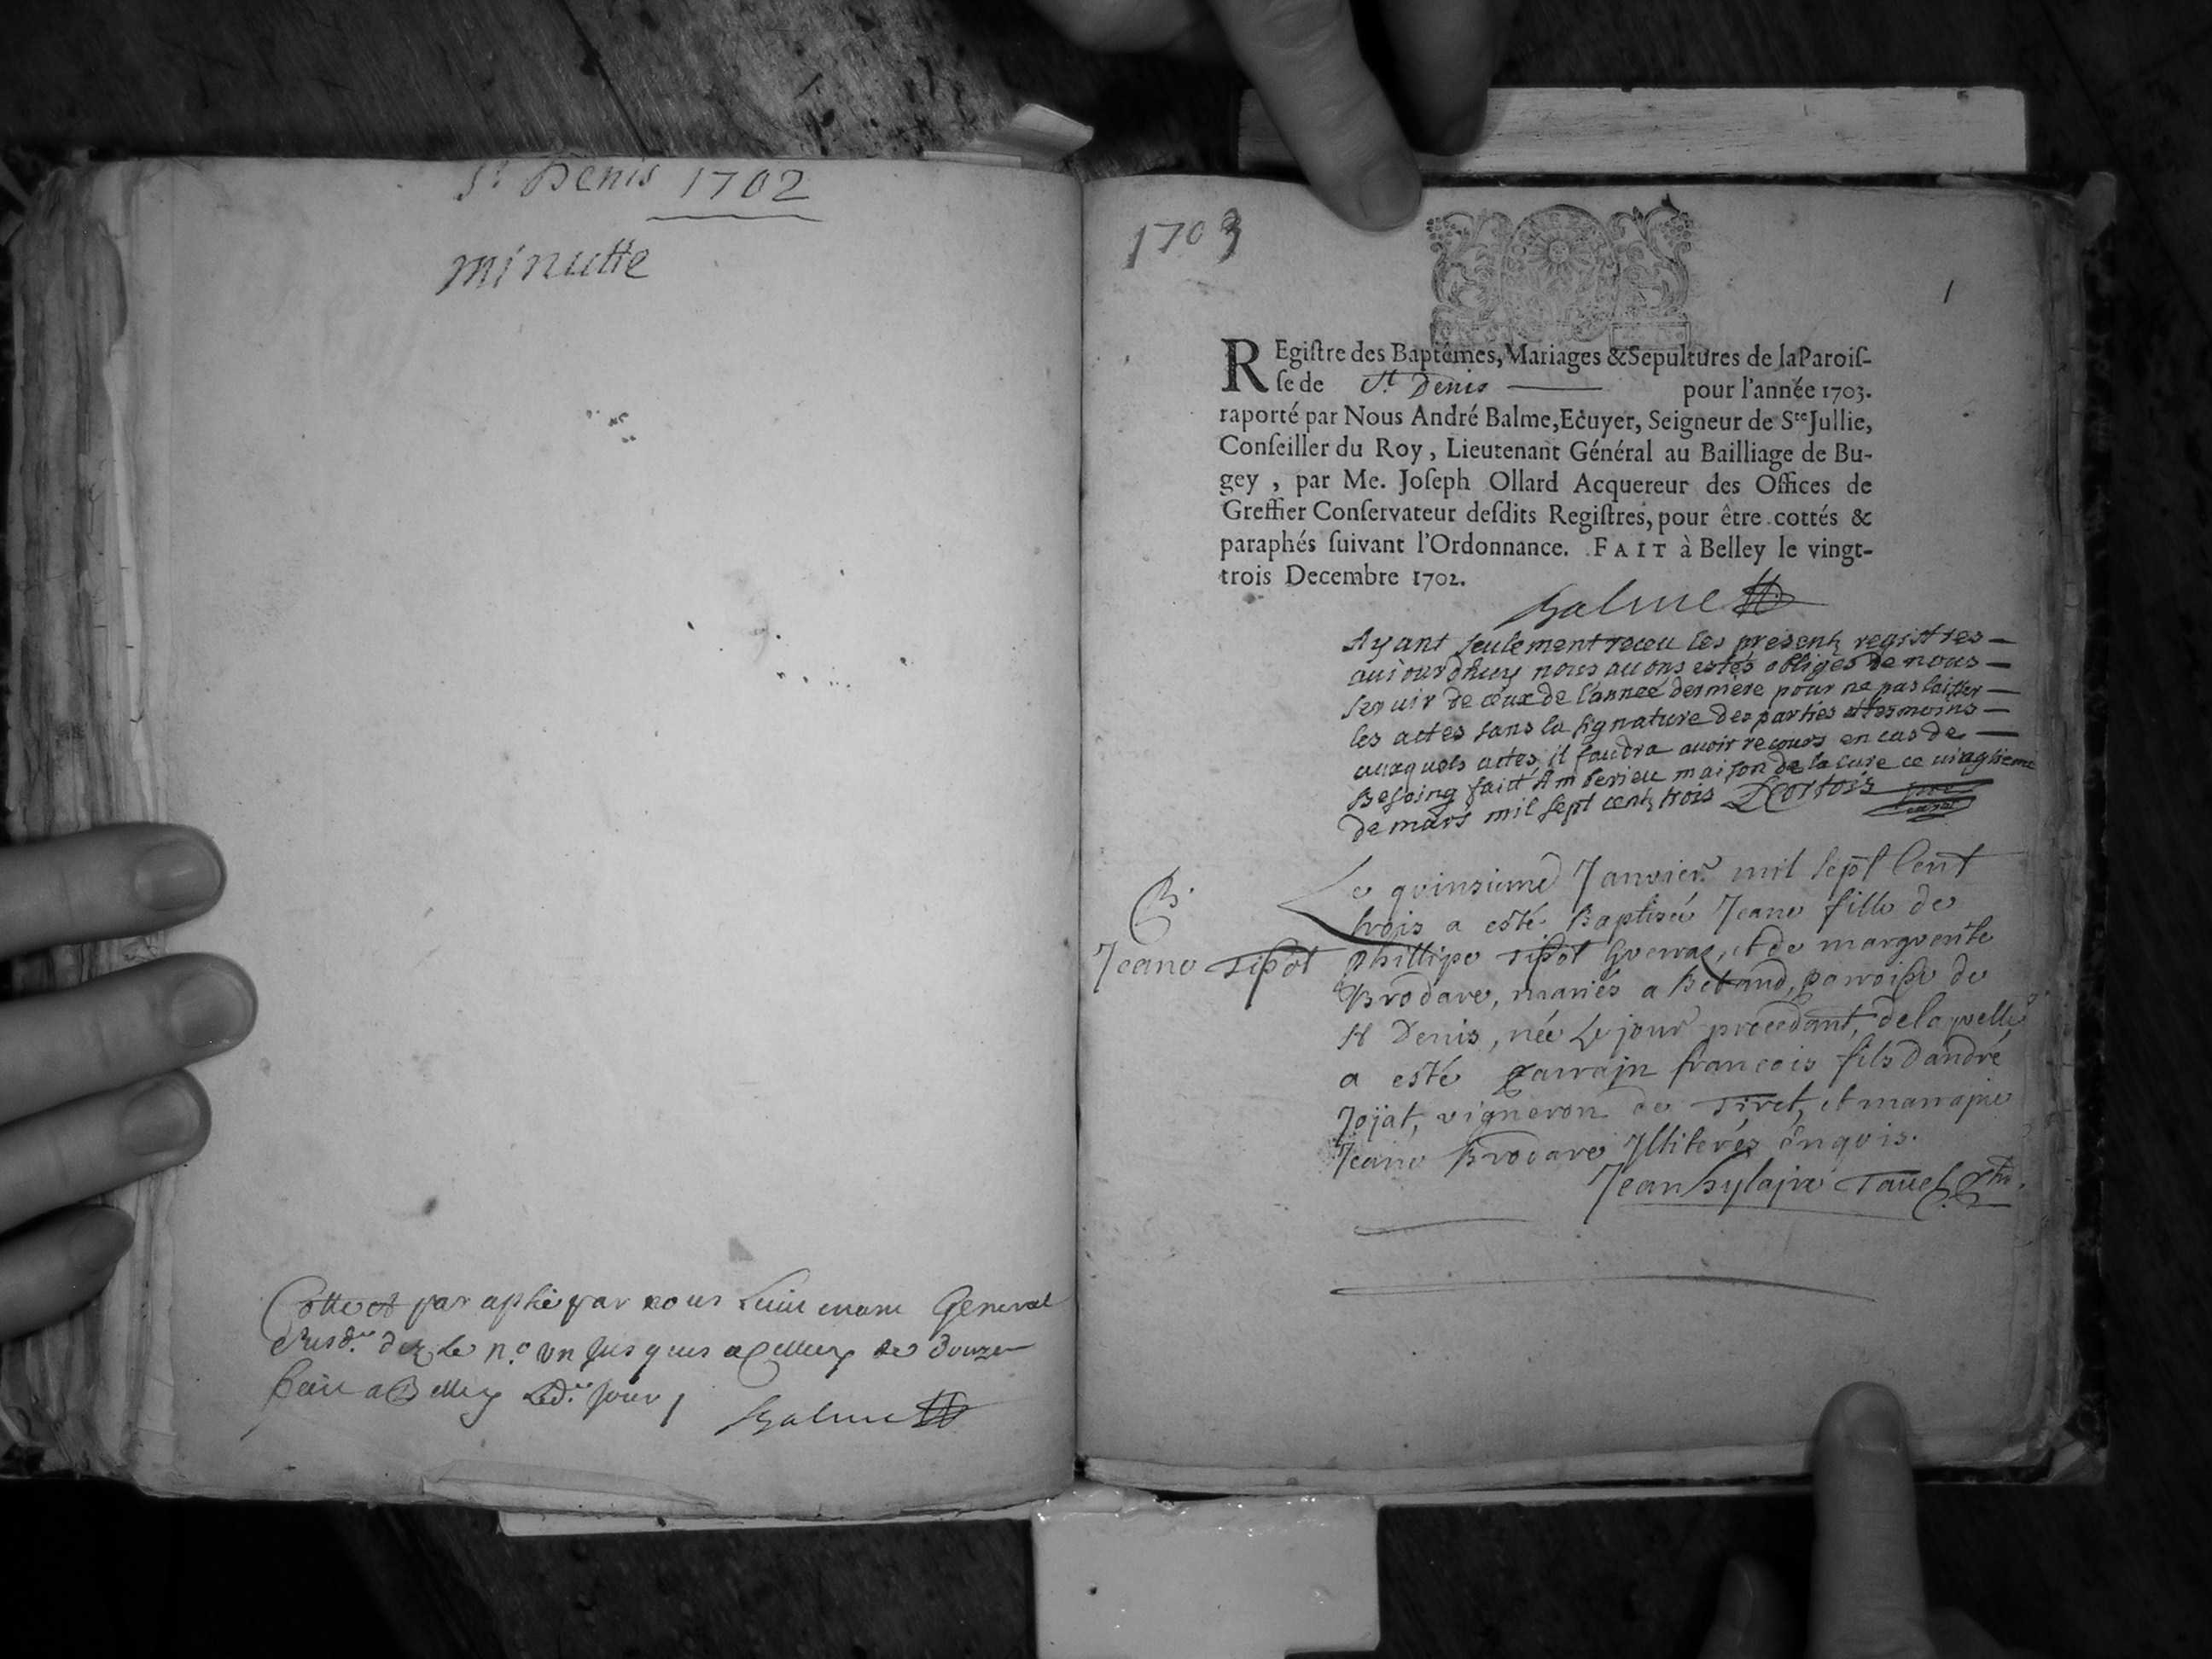 St Denis 1702
minutte
Cotté et paraphé par nous Lieutenant General
susd. dez le n.o un jusques a celluy de douze
faict a Belley Led. jour /
Balme
1703
1
REgiſtre des Baptêmes, Mariages & Sepultures de la Paroiſ-
ſe de St. Denis pour l'année 1703.
raporté par Nous André Balme, Ecuyer, Seigneur de Ste Jullie,
Conſeiller du Roy, Lieutenant Général au Bailliage de Bu-
gey, par Me. Joſeph Ollard Acquereur des Offices de
Greffier Conſervateur deſdits Regiſtres, pour être cottés &
paraphés ſuivant l'Ordonnance. FAIT à Belley le vingt-
trois Decembre 1702.
Balme
Ayant seulement receu les presentz registres
auiourdhuy nous auons estés obligés de nous
seruir de ceux de l'année derniere pour ne pas laisser
les actes sans la signature des parties et tesmoins
auxquels actes il faudra auoir recours en cas de
Besoing fait Amberieu maison de la cure ce uingtieme
de mars mil sept centz trois DCortois
B.
Jeane Tissot
Le quinsieme Janvier mil sept Cent
trois a esté Baptisée Jeane fille de
phillipe Tissot et de marguerite
Brodare, mariés a Betand, paroisse de
St Denis, née Le jour precedant, de laquelle
a esté parrain francois fils dandré
Jojat, vigneron de Tiret, et marraine
Jeane Brodare Illiterés enquis.
Jean hylaire Tauel